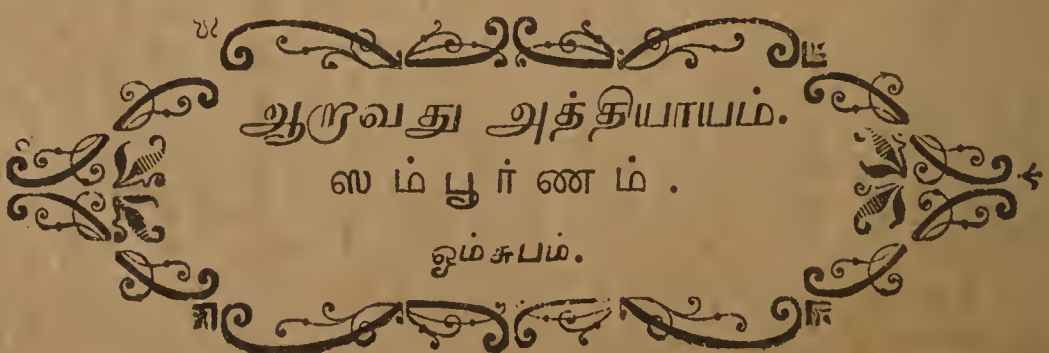 ஆறாவது அத்தியாயம்.
ஸம்பூர்ணம்.
ஓம்சுபம்.